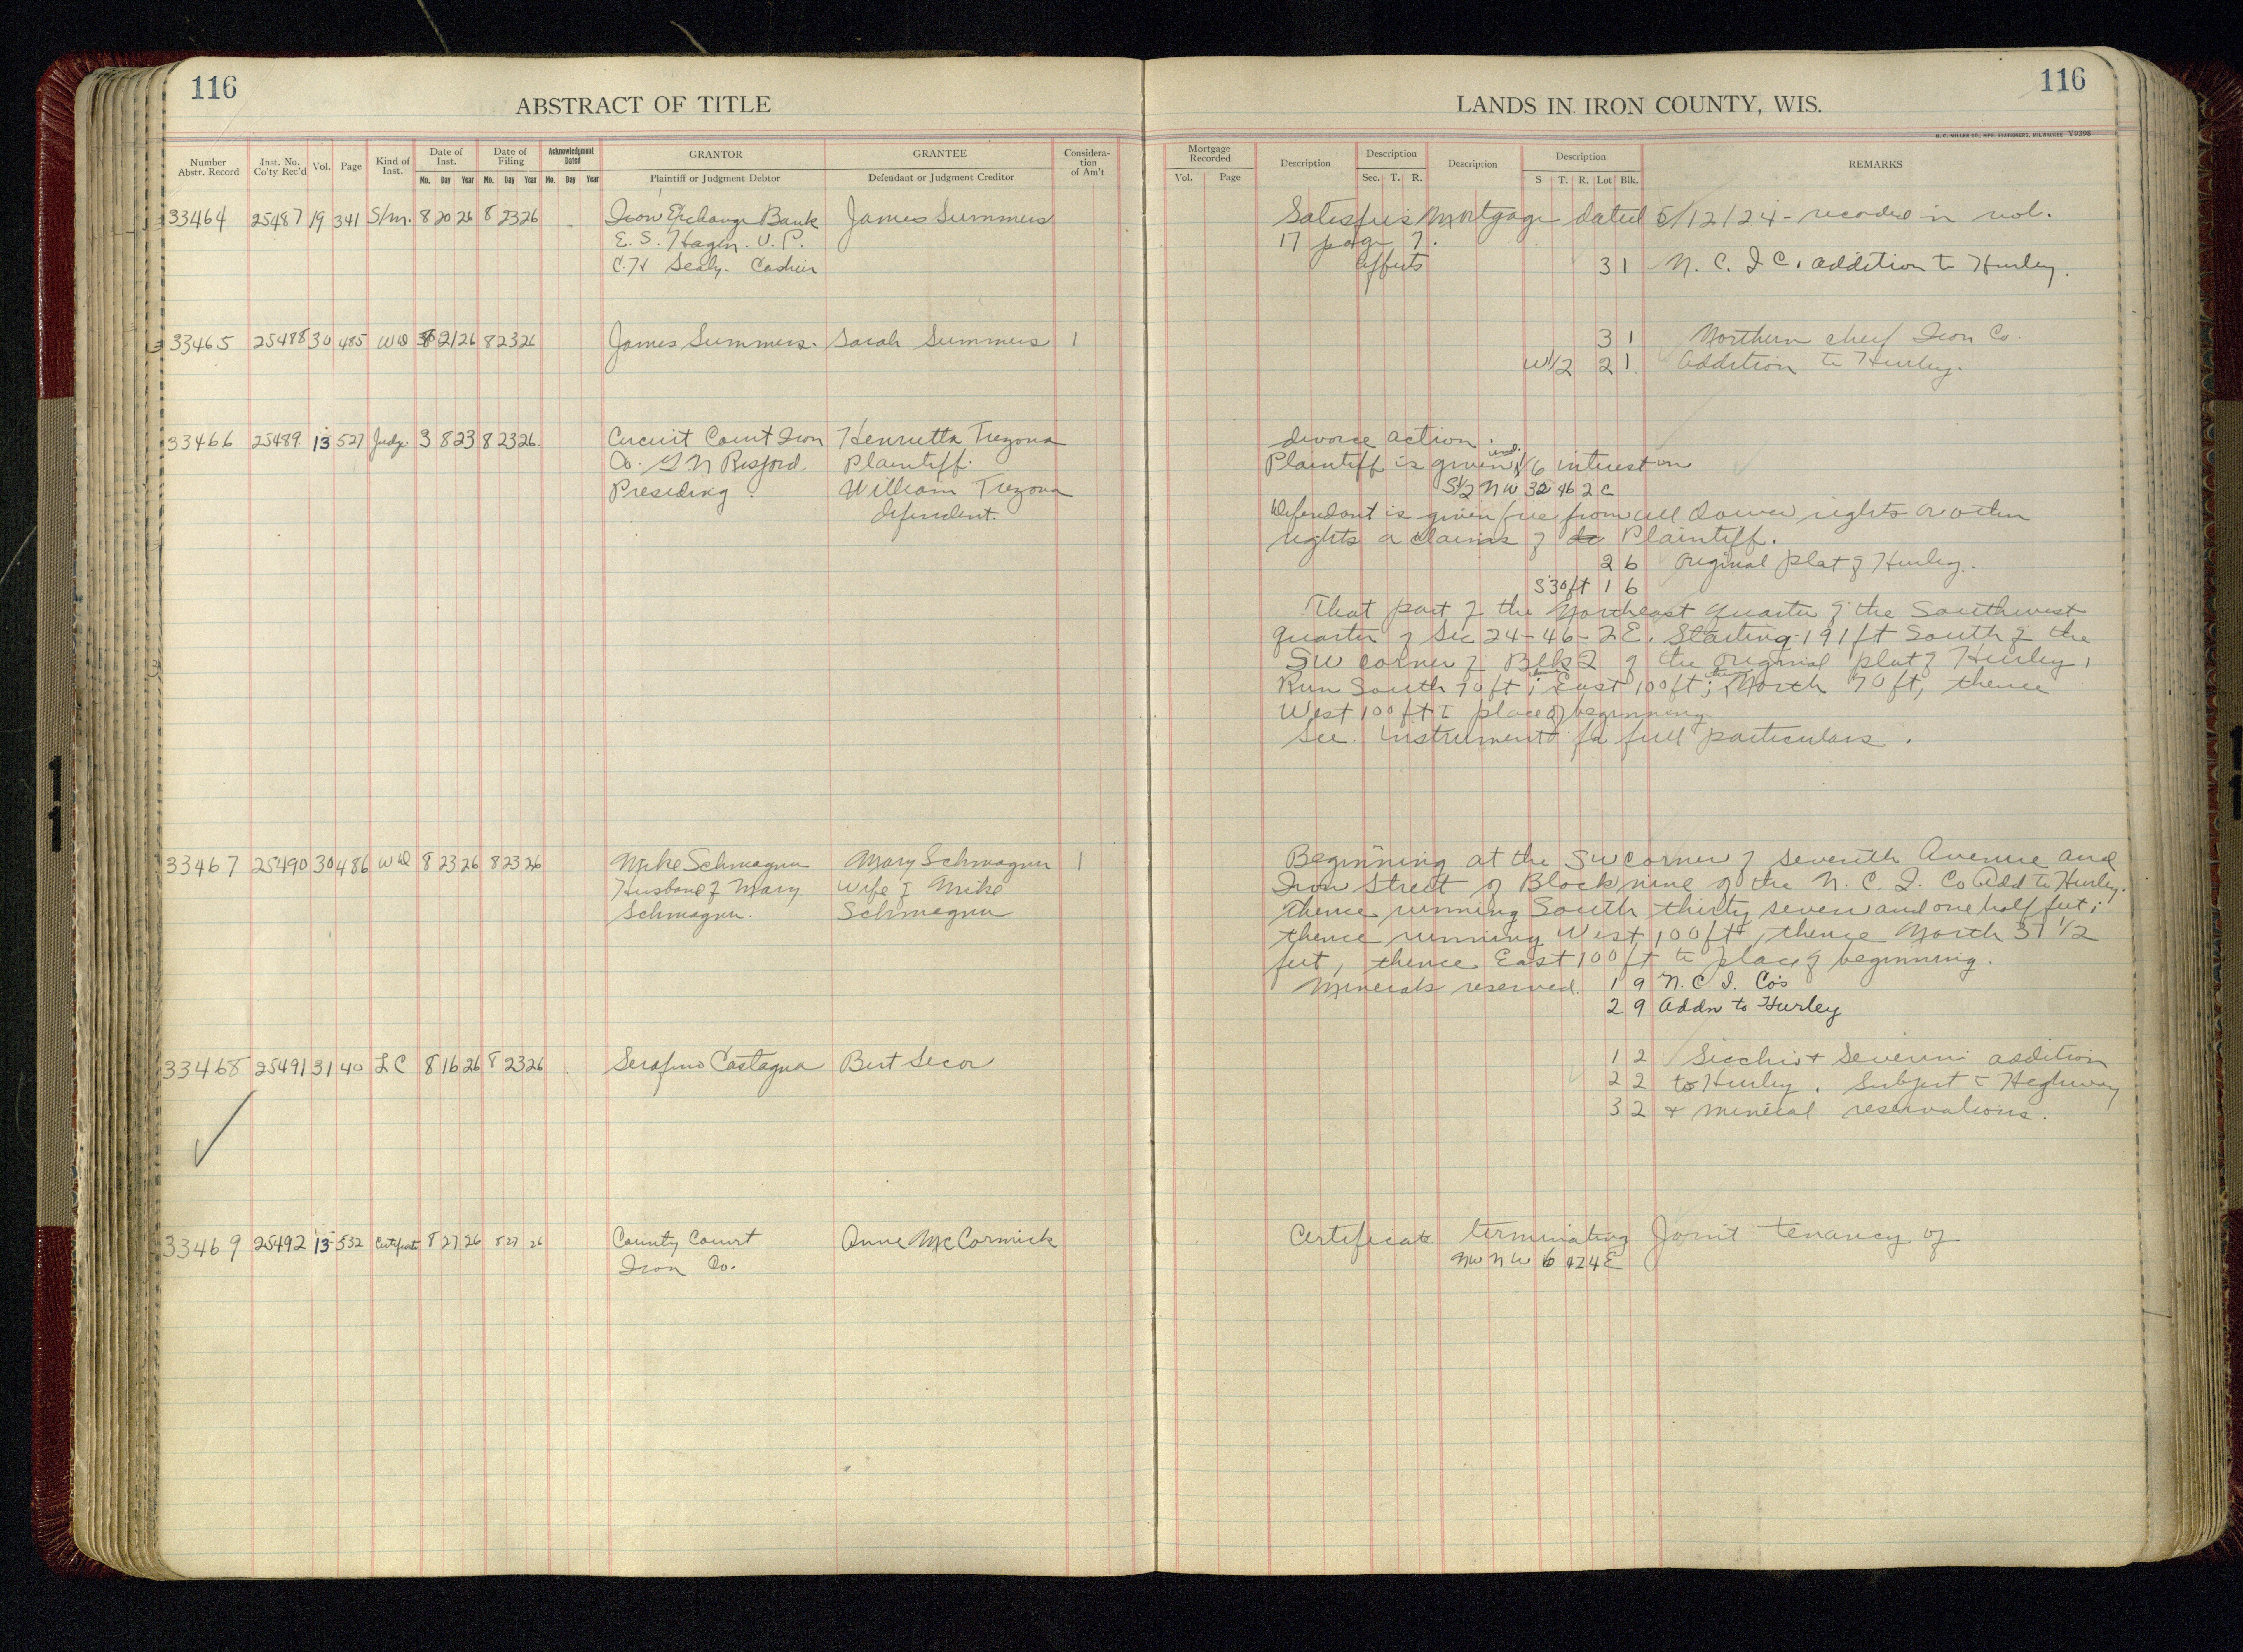 116
ABSTRACT OF TITLE
Number Abstr. Record
Inst. No. Co'ty Rec'd
Vol.
Page
Kind of Inst.
Date of Inst.
Mo. Day Year
Date of Filing
Mo. Day Year
Acknowledgment Dated
Mo. Day Year
GRANTOR
Plaintiff or Judgment Debtor
GRANTEE
Defendant or Judgment Creditor
Considera-tion of Am't
33464 25487 19 341 S/m. 8 20 26 8 23 26 Iron Exchange Bank James Summers
E. S. Hagen. V. P.
C. H Sealy. Cashier
33465 25488 30 485 WD 8 21 26 8 23 26 James Summers. Sarah Summers 1
33466 25489 13 527 Judg. 3 8 23 8 23 26 Circuit Court Iron Henrietta Trezona
Co. G. N Risjord. Plaintiff.
Presiding. William Trezona
defendent.
33467 25490 30 486 WD 8 23 26 8 23 26 Mike Schmagner Mary Schmagner 1
Husband of Mary Wife of Mike
Schmagner. Schmagner
33468 25491 31 40 LC 8 16 26 8 23 26 Serafino Castagna Bert Secor
33469 25492 13 532 Certificate 8 27 26 8 27 26 County Court Anne McCormick
Iron Co.
116
LANDS IN IRON COUNTY, WIS.
H. C. MILLER CO., MFG. STATIONERS, MILWAUKEE V9398
Mortgage Recorded
Vol. Page
Description
Description
Sec. T. R.
Description
Description
S T. R. Lot Blk.
REMARKS
Satisfies Mortgage dated 5/12/24 - recorded in vol.
17 page 7.
affects 3 1 N. C. I C. addition to Hurley.
3 1 Northern chief Iron Co.
W1/2 2 1 Addition to Hurley.
divorce action.
Plaintiff is given und. 1/6 interest on
S1/2 NW 32 46 2 E
Defendant is given free from all dower rights or other
rights or claims of Plaintiff.
2 6 Original plat of Hurley.
S30ft 1 6
That part of the Northeast quarter of the Southwest
quarter of Sec 24-46-2E. Starting 191 ft South of the
SW corner of Blk 2 of the original plat of Hurley,
Run South 70 ft; thence East 100 ft; thence North 70 ft, thence
West 100 ft to place of beginning
See instrument for full particulars.
Beginning at the SW corner of Seventh Avenue and
Iron Street of Block nine of the N. C. I. Co Add to Hurley.
thence running South thirty seven and one half feet;
thence running West 100 ft, thence North 37 1/2
feet, thence East 100 ft to place of beginning.
Minerals reserved. 1 9 N. C. I. Co's
2 9 Addn to Hurley
1 2 Sicchio & Severini addition
2 2 to Hurley. Subject to Highway
3 2 & mineral reservations.
Certificate terminating Joint tenancy of
NW NW 6 42 4 E